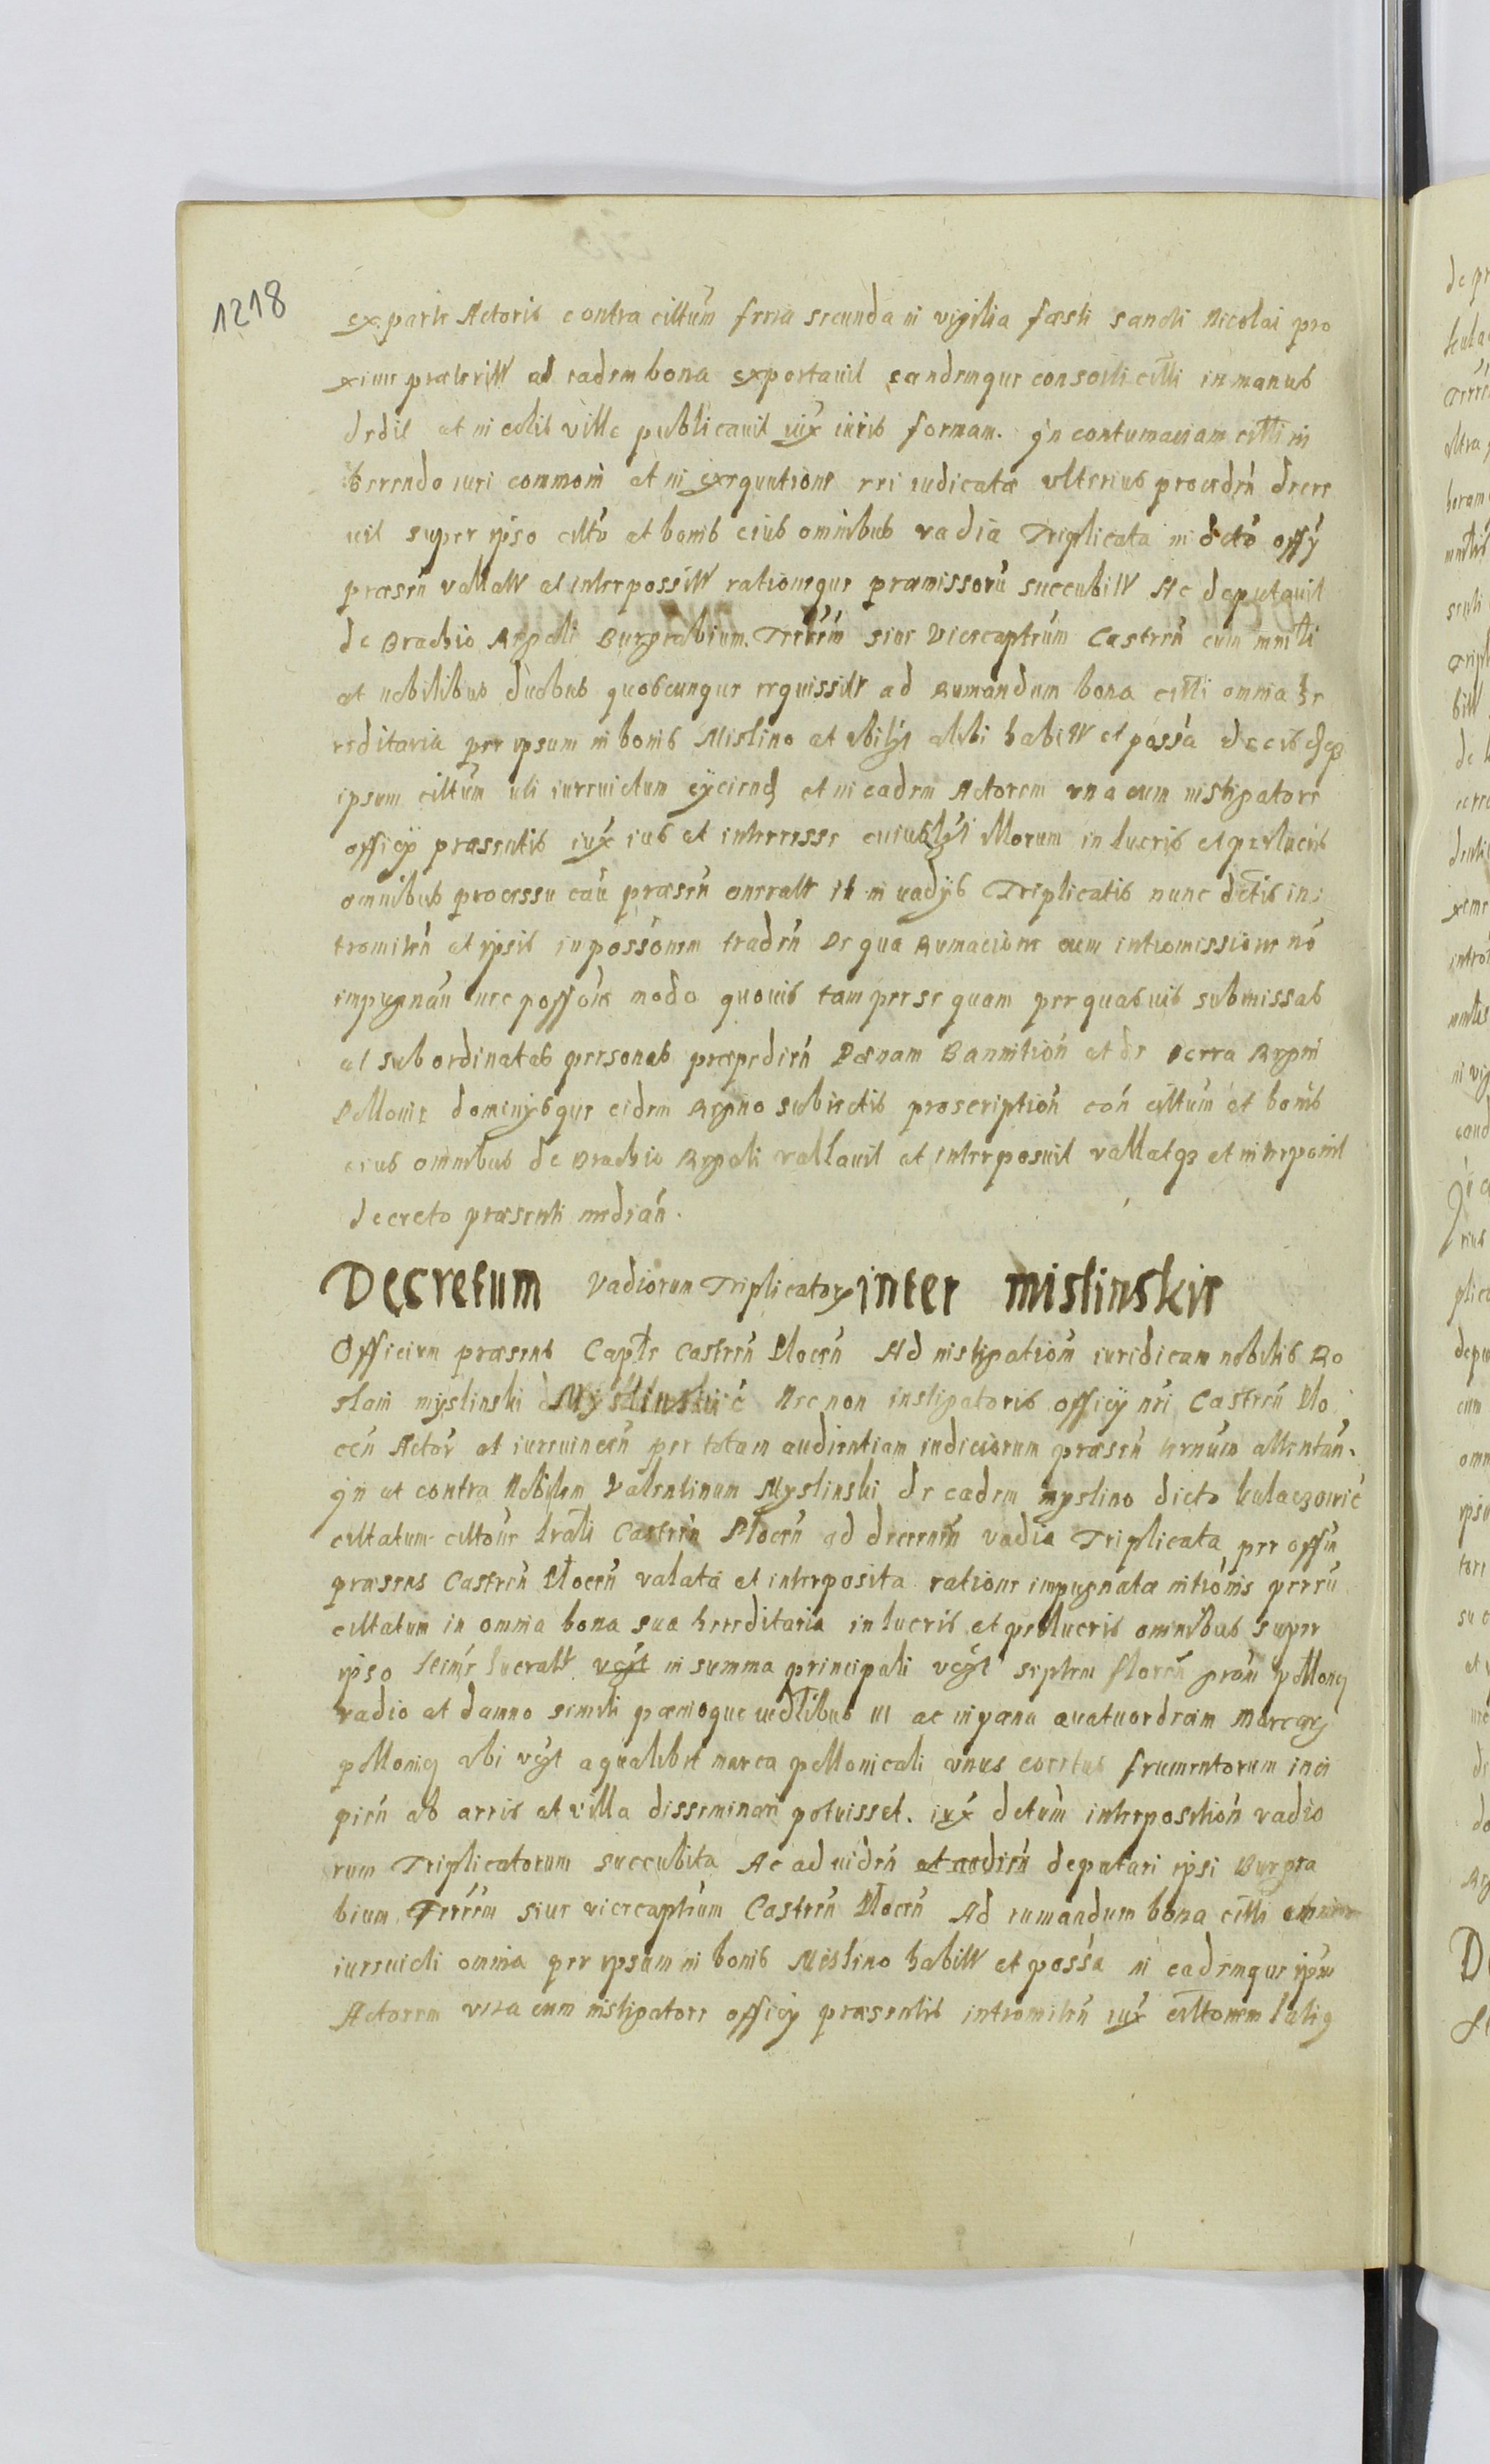 1218
ex parte Actoris contra citt̄um feria secunda in vigilia faesti sancti Nicolai pro
xime praeteritt ad eadem bona exportavit eandemque consorti citti in manus
dedit et incolis ville publicavit iux iuris formam. Jn contumaciam citti in
haerendo iuri commoni et in exequutione rei iudicatae ulterius proceden̄ decre
uit super ipso citto et bonis eius omnibus vadia Triplicata in dcto offÿ
praesen̄ vallatt et interpositt rationeque praemissorū succubitt Ac deputavit
de Brachio Regali Burgrabium Terrēm siue Vicecaptēum Castren̄ cum mnr̄li
et nobilibus duobus quoscunque requissitt ad Rumandum bona citti omnia he
reditaria per ipsum in bonis Mislino et ubilīgt alibi habitt et possā de eis q̄
ipsum citt̄um uti iureuictum eÿciend et in eadem Actorem una cum instigatore
officÿ praesentis iux ius et interesse cuiuslgt illorum in lucris et perlucris
omnibus processu cau praesen̄ oneratt it in vadÿs Triplicatis nunc dictis in
tromiten̄ et ipsis in possōnem traden̄ De qua Rumacione cum intromissione nō
impugnan̄ nec possōre modo quouis tam per se quam per quasuis submissas
et subordinatas personas praepedien̄ Paenam Bannition̄ et de terra Regni
Pollonie dominÿsque eidem Regno subiectis proscription̄ con̄ citt̄um et bonis
eius omnibus de Brachio Regali vallauit et interposuit vallatq3 et interponit
decreto praesenti median̄.
Decretum Vadiorum Triplicator inter mislinskie
Officium praesens Capt̄le Castren̄ Plocen̄ Ad instigation̄ iuridicam nobilis Ro
slain myslinski Myslinskiic Nec non instigatoris officÿ nr̄i Castren̄ Plo
cen̄ Actor̄ et iureuincen̄ per totam audientiam iudiciorum praesen̄ ternum attentan̄.
Jn et contra Nobilem Valentinum Myslinski de eadem myslino dicto kulaczowic
cittatum cittōne trali Castren̄ Plocen̄ ad decernen̄ vadia Triplicata per offm̄
praesens Castren̄ Plocen̄ valata et interposita ratione impugnatae intrōnis per eū
cittatum in omnia bona sua hereditaria in lucris et perlucris omnibus super
ipso teime lucratt vÿt in summa principali vÿt septem floren̄ grām pollonq
vadio et damno simili paenisque uidlibus III ac in paena quatuordecim Marcarq
pollonicq ubi vÿt a qualibet marca pollonicali unus coretus frumentorum inci
pien̄ ab arris et villa disseminari potuisset. iux dctum interposition̄ vadio
rum Triplicatorum succubita Ac ad uiden̄ et audien̄ deputari ipsi Burgra
bium Terrēm siue vicecaptēum Castren̄ Plocen̄ Ad rumandum bona citti omnia
iureuicti omnia per ipsum in bonis Mislino habitt et possā in eademque ipm̄
Actorem una cum instigatore officÿ praesentis intromiten̄ iux cittōnem latiq